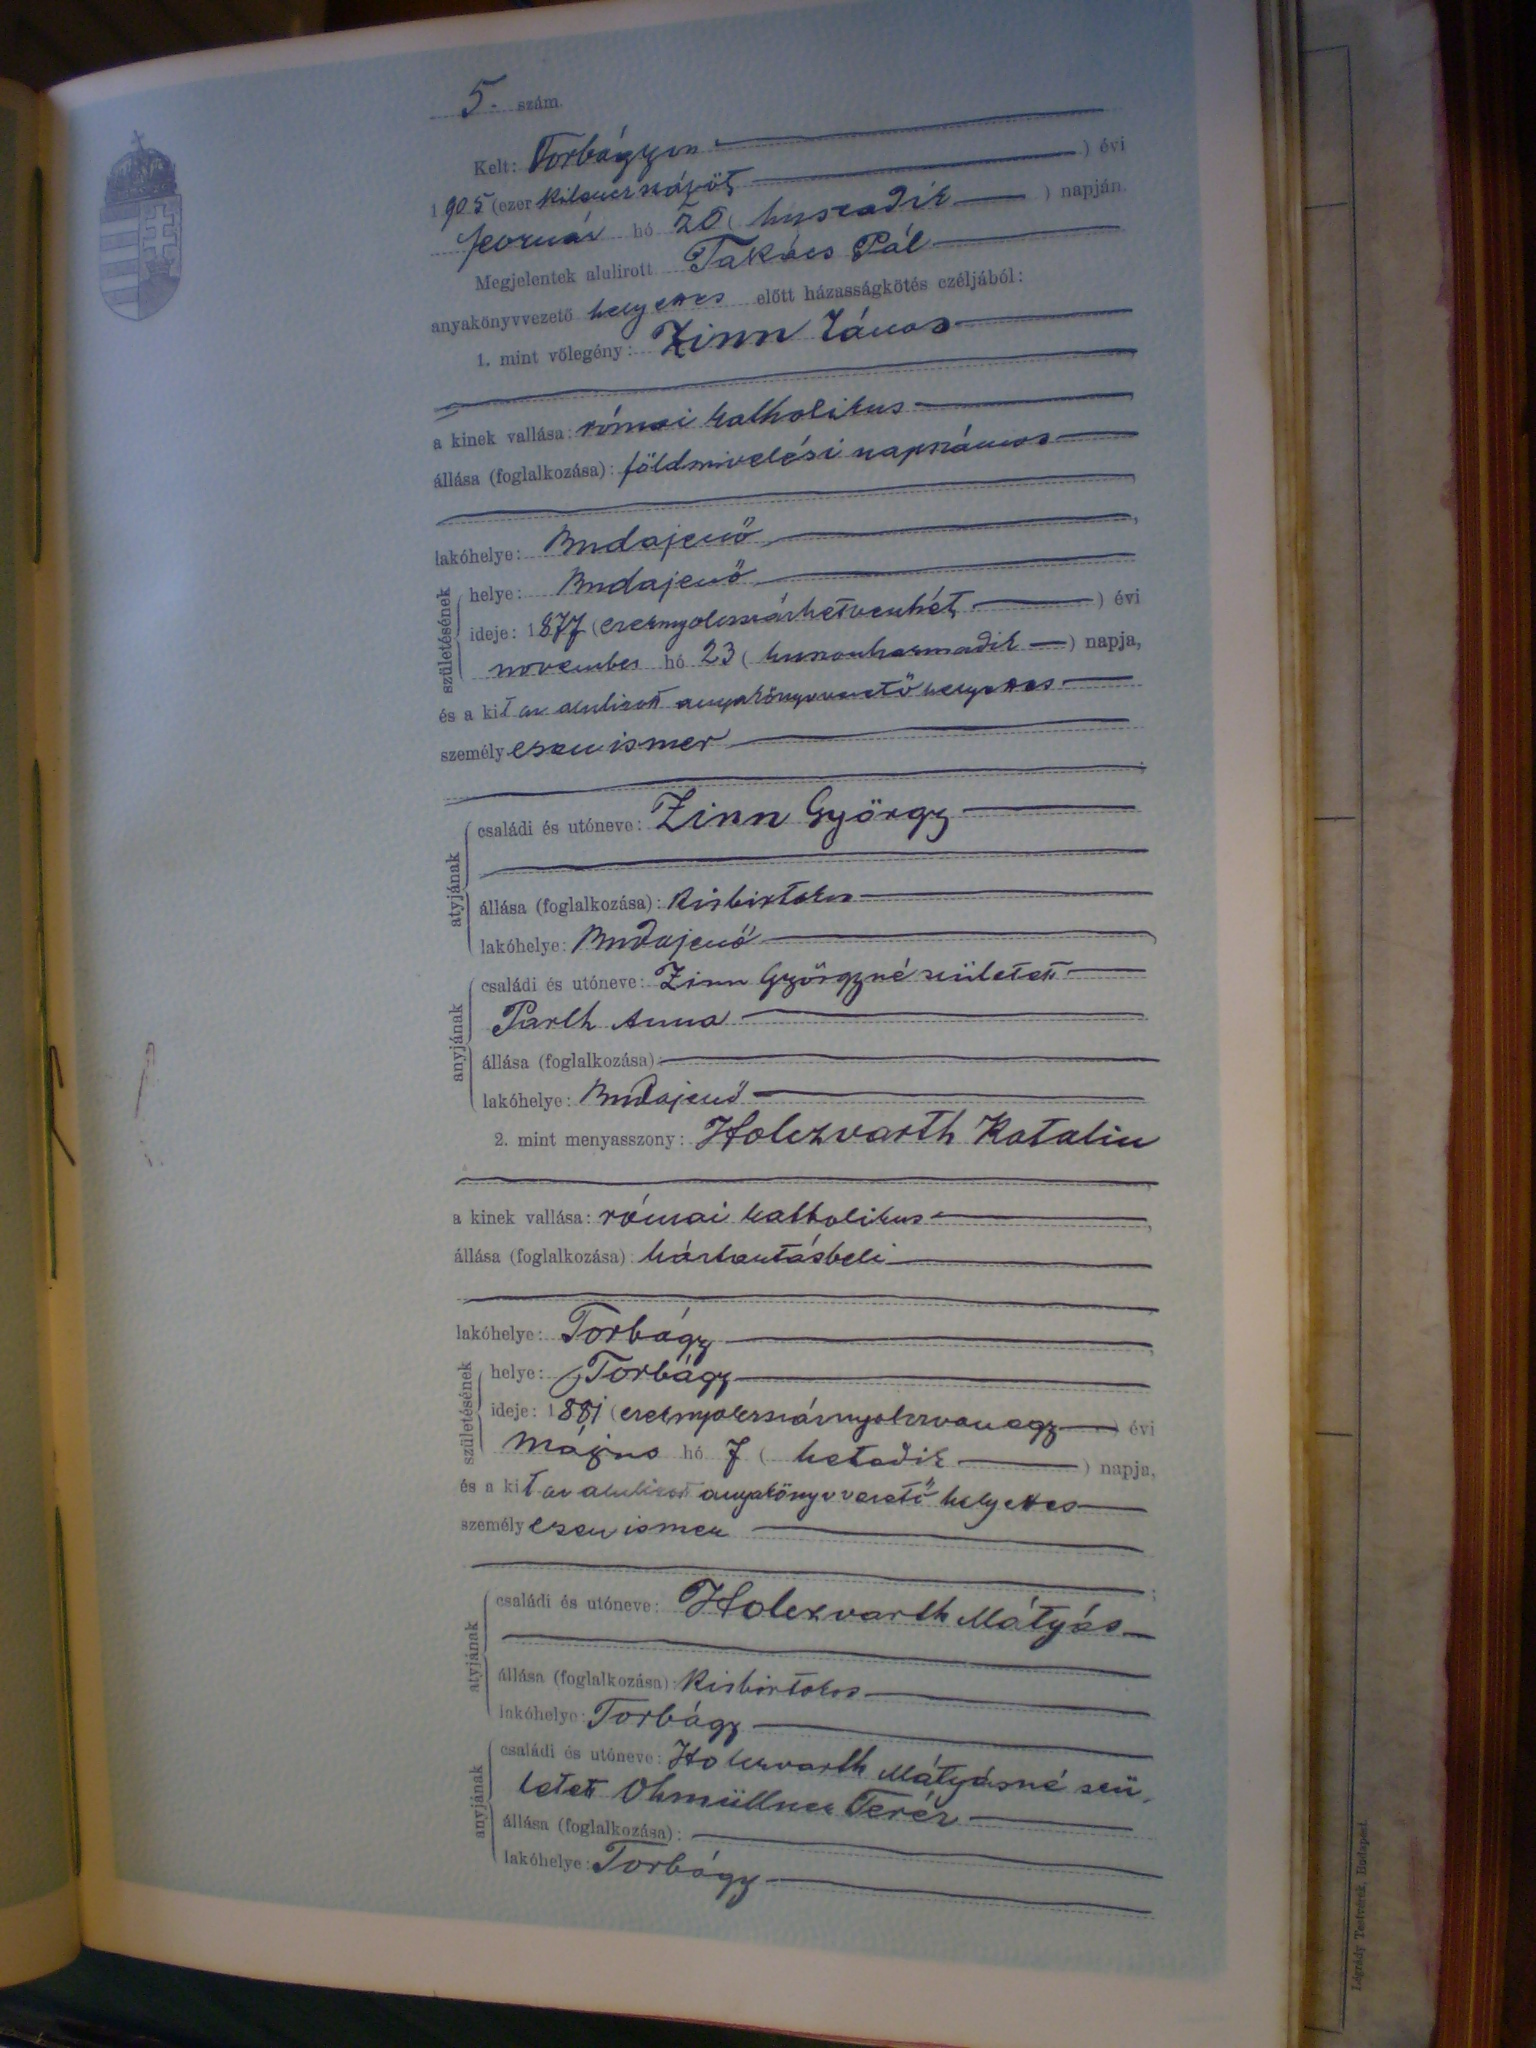 5. szám.
Kelt: Torbágyon
1905 (ezerkilencszázöt) évi
február hó 20 (huszadik) napján.
Megjelentek alulirott Takács Pál
anyakönyvvezető helyettes előtt házasságkötés czéljából:
1. mint vőlegény: Zinn János
a kinek vallása: római katholikus
állása (foglalkozása): földmivelési napszámos
lakóhelye: Budajenő
születésének
helye: Budajenő
ideje: 1877 (ezernyolcszázhetvenhét) évi
november hó 23 (huszonharmadik) napja,
és a kit az alulirott anyakönyvvezető helyettes
személyesen ismer
atyjának
családi és utóneve: Zinn György
állása (foglalkozása): Kisbirtokos
lakóhelye: Budajenő
anyjának
családi és utóneve: Zinn Györgyné született
Parth Anna
állása (foglalkozása):
lakóhelye: Budajenő
2. mint menyasszony: Holczvarth Katalin
a kinek vallása: római katholikus
állása (foglalkozása): háztartásbeli
lakóhelye: Torbágy
születésének
helye: Torbágy
ideje: 1881 (ezernyolczszáznyolczvanegy) évi
május hó 7 (hetedik) napja,
és a kit az alulirott anyakönyvvezető helyettes
személyesen ismer
atyjának
családi és utóneve: Holczvarth Mátyás
állása (foglalkozása): Kisbirtokos
lakóhelye: Torbágy
anyjának
családi és utóneve: Holczvarth Mátyásné szü-
letett Ohmüllner Teréz
állása (foglalkozása):
lakóhelye: Torbágy
Légrády Testvérek, Budapest.